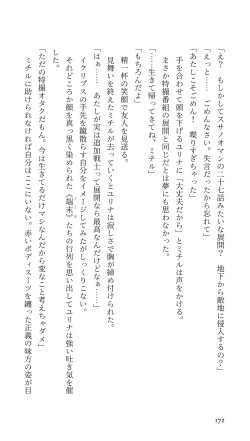 「え？　もしかしてスサノオマンの二十七話みたいな展開？　地下から敵地に侵入するの？」
「えっと……　ごめんなさい。失言だったから忘れて」
「あたしこそごめん！　喋りすぎちゃった」
手を合わせて頭を下げるユリナに「大丈夫だから」とミチルは声をかける。
まさか特撮番組の展開と同じだとは夢にも思わなかった。
「……生きて帰ってきてね、ミチル」
「もちろんだよ」
精一杯の笑顔で友人を見送る。
見舞いを終えたミチルが去っていくとユリナは寂しさで胸が締め付けられた。
「はぁ……　あたしが実は追加戦士って展開なら最高なんだけどなぁ……」
イクリプスの手先を蹴散らす自分をイメージしてみたがしっくりこない。
それどころか顔を真っ黒く染められた〈端末〉たちの行列を思い出してユリナは強い吐き気を催
した。
「ただの特撮オタクだもん。今は生きてるだけマシなんだから変なこと考えちゃダメ」
ミチルに助けられなければ自分はここにいない。赤いボディスーツを纏った正義の味方の姿が目
172